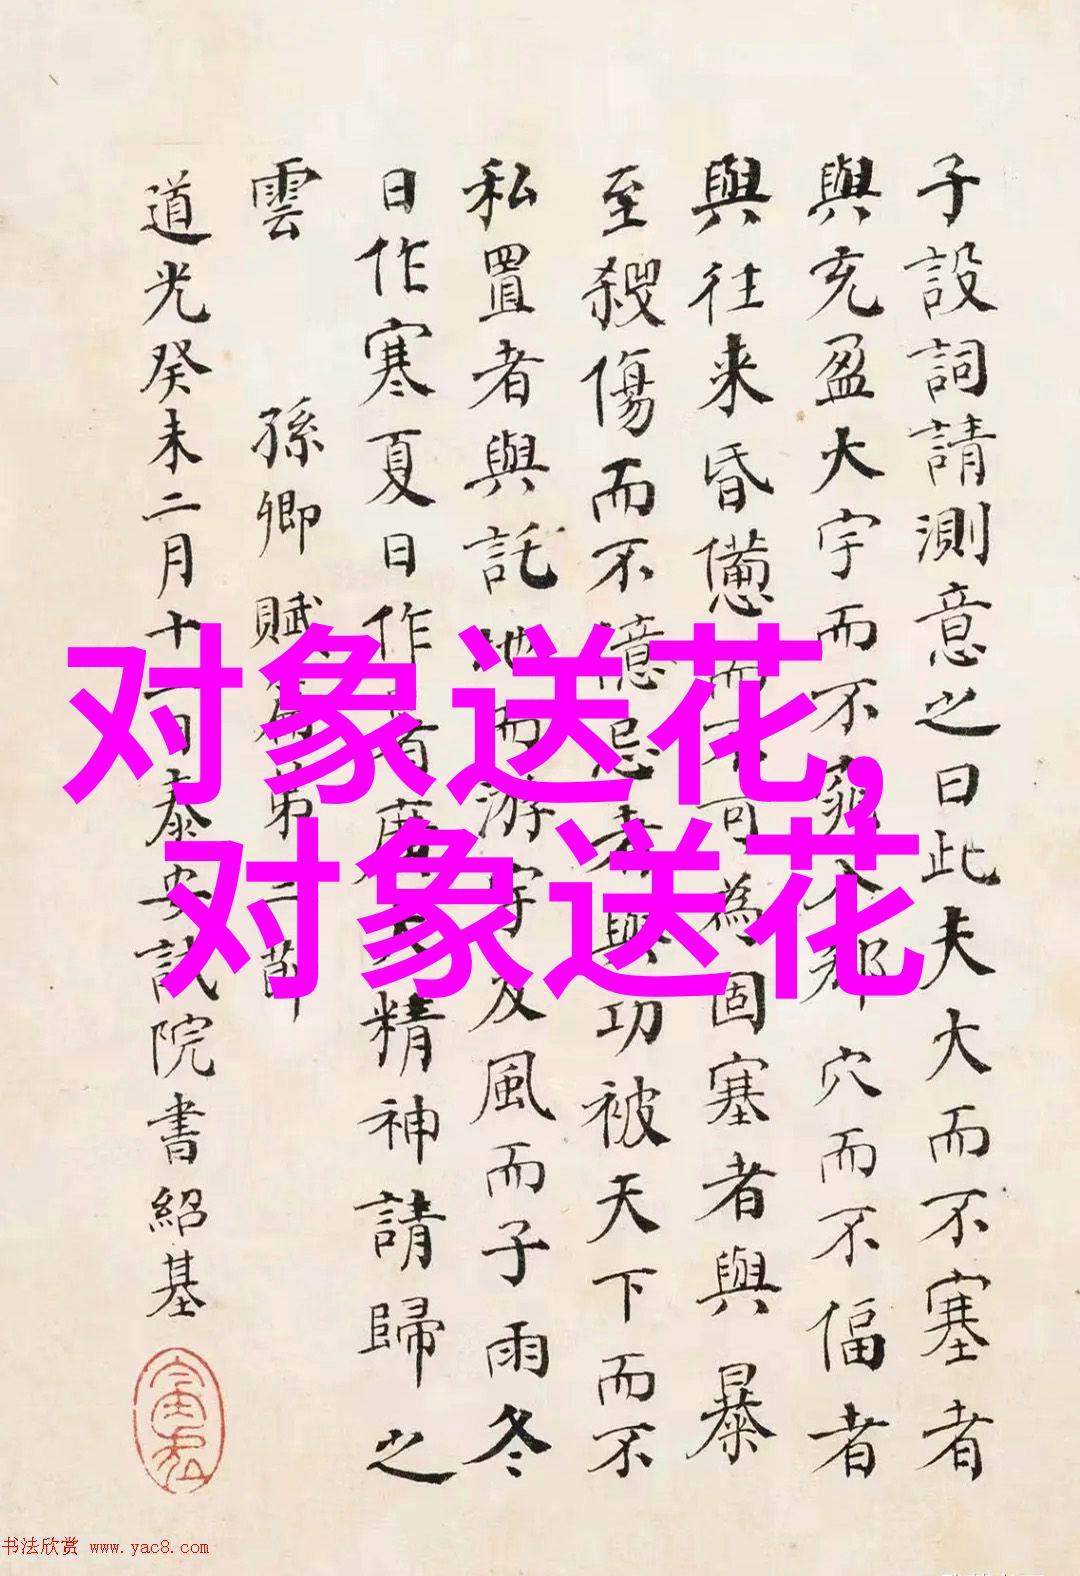 子設詞請測意之曰此夫大而不塞者
與充盈大宇而不窕入郄穴而不偪者
與往来昏憊而不可為固塞者與暴
至殺傷而不億忌者與功被天下而不
私置者與託地而游宇友風而子雨冬
日作寒夏日作暑廣大精神請歸之
雲 孫卿賦篇第二節
道光癸未二月十一日泰安試院書紹基
对象送花,
对象送花
书法欣赏 www.yac8.com